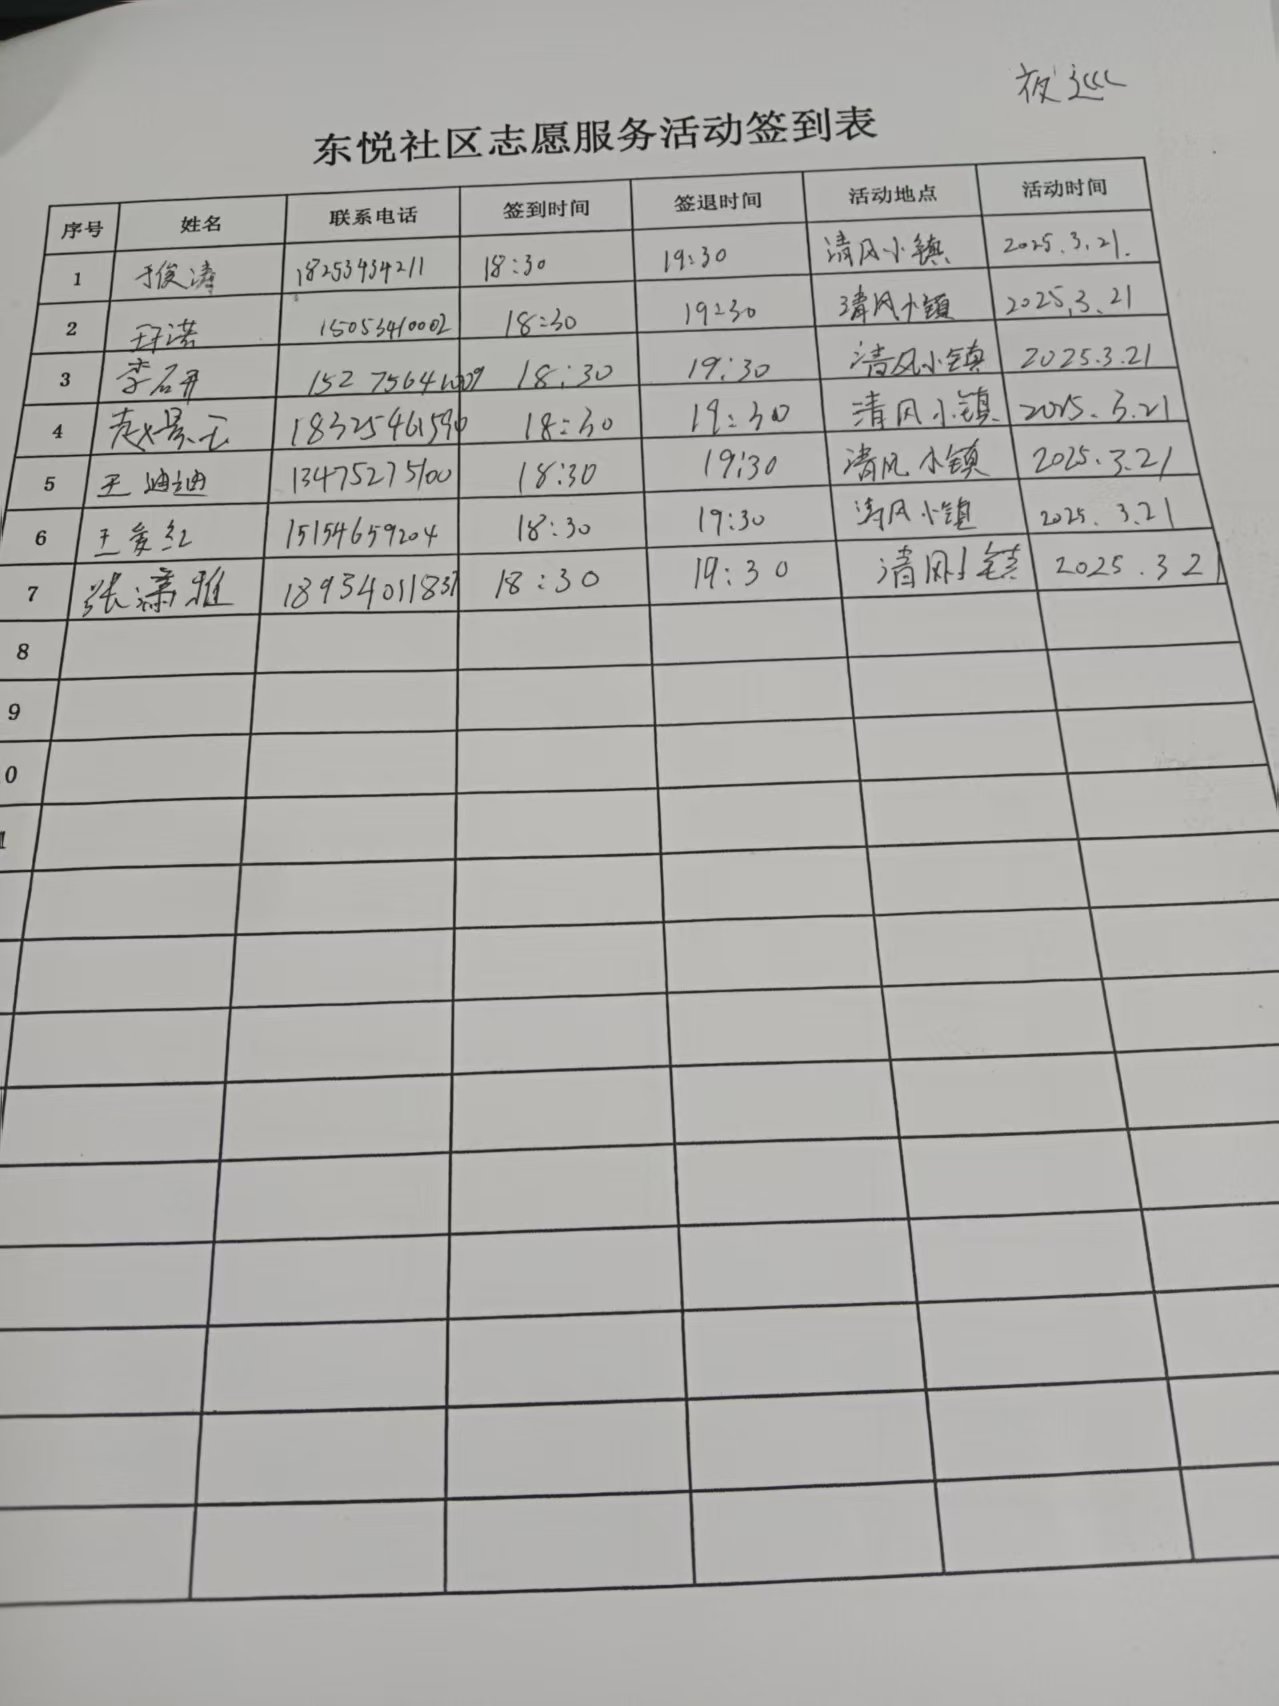 夜巡
东悦社区志愿服务活动签到表
序号 姓名 联系电话 签到时间 签退时间 活动地点 活动时间
1 于俊涛 18253434211 18:30 19:30 清风小镇 2025.3.21.
2 15053410002 18:30 19:30 清风小镇 2025.3.21
3 李召丹 18:30 19:30 清风小镇 2025.3.21
4 赵景云 18325461590 18:30 19:30 清风小镇 2025.3.21
5 王迪迪 13475275100 18:30 19:30 清风小镇 2025.3.21
6 15154659204 18:30 19:30 清风小镇 2025.3.21
7 张潇雅 18934011837 18:30 19:30 清风小镇 2025.3.21
8
9
0
1